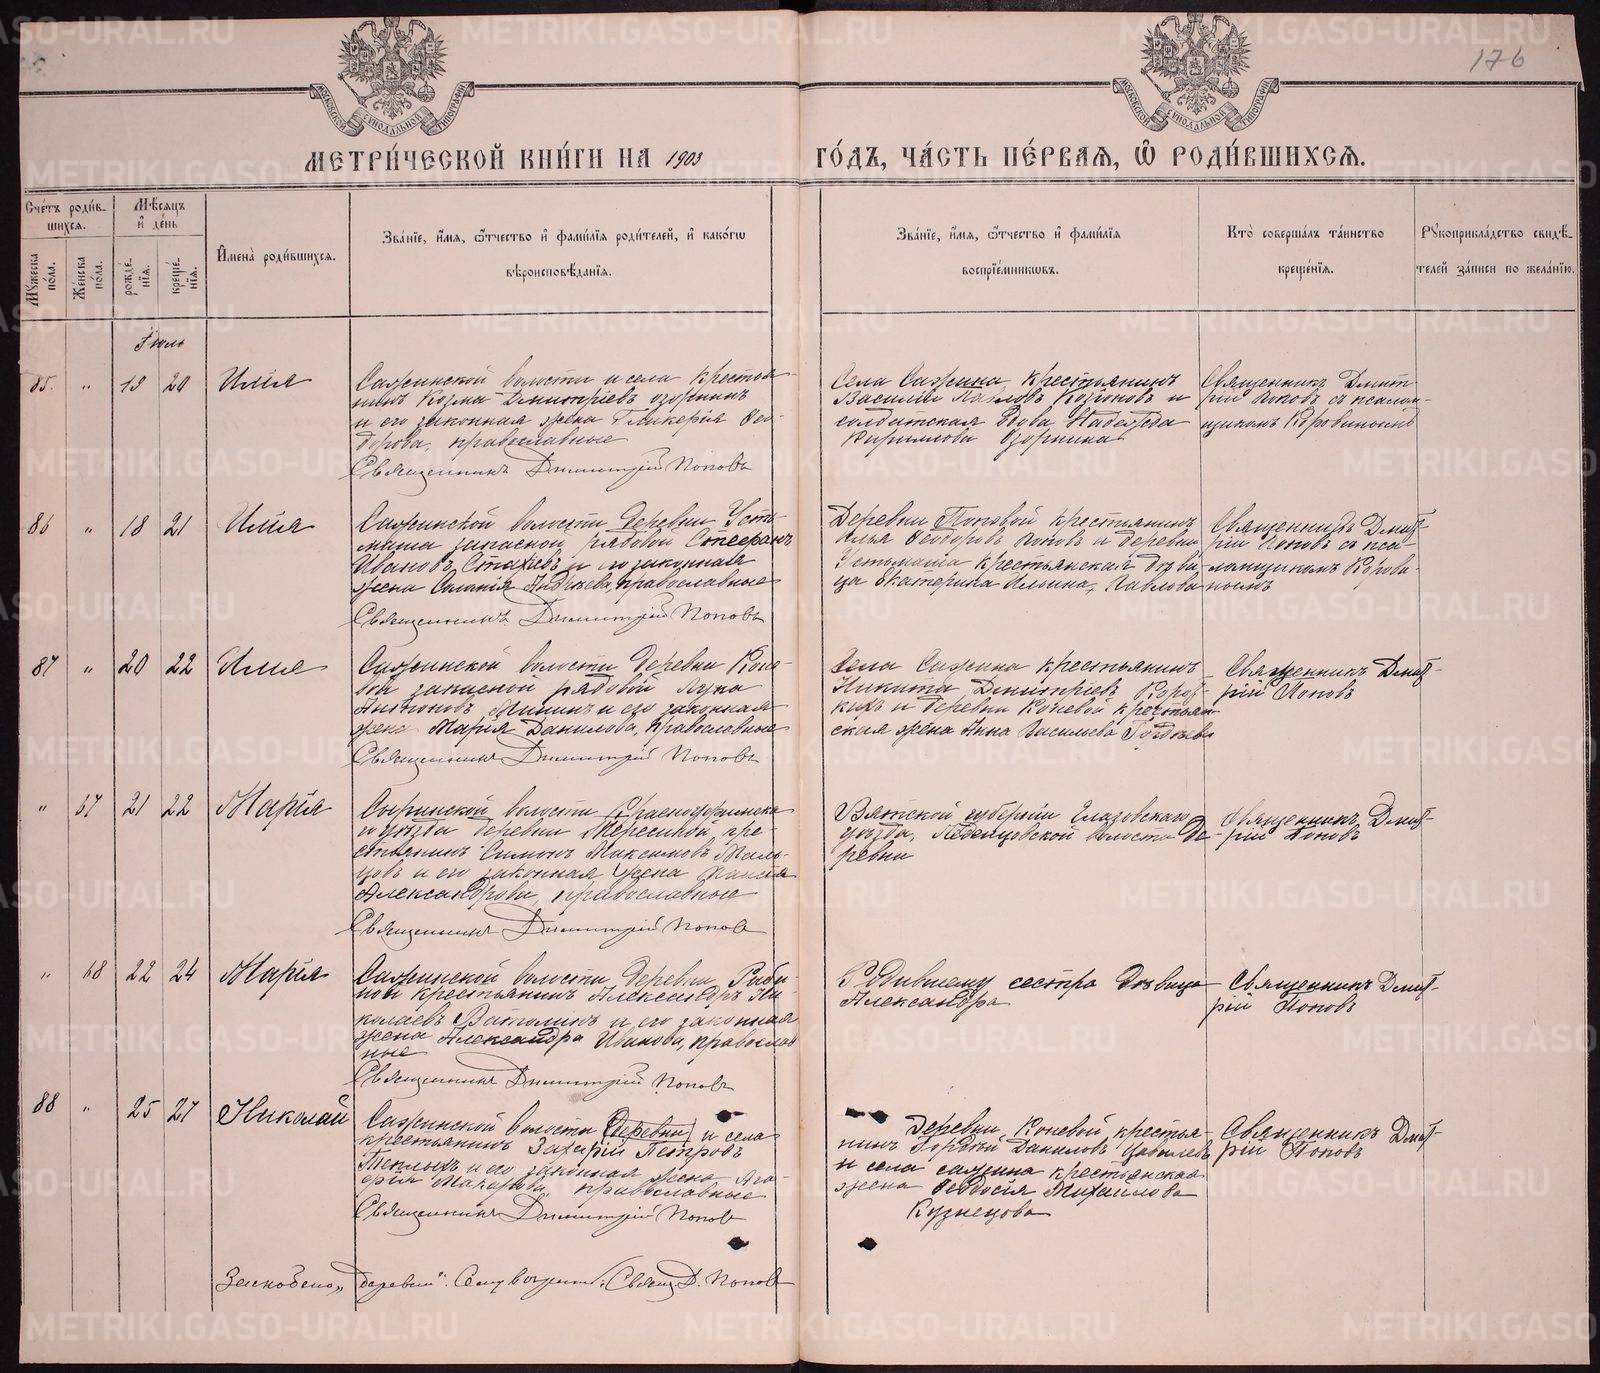 176
МЕТРИ́ЧЕСКОЙ КНИ́ГИ НА 1903 ГО́ДЪ, ЧА́СТЬ ПЕ́РВАЯ, Ѽ РОДИ́ВШИХСЯ.
Сче́тъ роди́вшихся.
Мѣ́сяцъ и де́нь
Мꙋ́жеска по́ла.
Же́нска по́ла.
рожде́нїя.
креще́нїя.
И́мена̀ роди́вшихся.
Зва́нїе, и́мя, ѻ҆́тчество и҆ фами́лїя роди́телей, и҆ како́гѡ
вѣроисповѣ́данїя.
Зва́нїе, и́мя, ѻ҆́тчество и҆ фами́лїя
воспрїе́мникѡвъ.
Кто̀ соверша́лъ та́инство
креще́нїя.
Рꙋкоприкла́дство свидѣ́-
телей за́писи по жела́нїю.
Іюль
85. " 19 20 Илія
Сажинской волости и села крестья
нинъ Козма Дмитріевъ Озорнинъ
и его законная жена Гликерія Ѳео
дорова, православные
Священникъ Димитрій Поповъ
Села Сажина крестьянинъ
Василій Павловъ и
солдатская вдова Надежда
Кириллова Озорнина
Священникъ Дмит
рій Поповъ съ псалом-
щикомъ Коровинымъ
86 " 18 21 Илія
Сажинской волости деревни Усть
маша запасной рядовой Стефанъ
Ивановъ Стахіевъ и его законная
жена православные
Священникъ Димитрій Поповъ
Деревни Поповой крестьянинъ
Илья Ѳеодоровъ Поповъ и деревни
Устьмаша крестьянская дѣви
ца Екатерина Ильина Павлова
Священникъ Дмит-
рій Поповъ съ пса-
ломщикомъ Корови-
нымъ
87 " 20 22 Илія
Сажинской волости деревни Коне-
вой запасной рядовой Лука
Антоновъ и его законная
жена Марія Данилова, православные
Священникъ Димитрій Поповъ
Села Сажина крестьянинъ
Никита Дмитріевъ Корот-
кихъ и деревни Коневой крестьян
ская жена Анна Васильева
Священникъ Дмит-
рій Поповъ
" 67 21 22 Марія
волости Красноуфимска
го уѣзда деревни кре-
стьянинъ Симонъ Максимовъ Маль-
цовъ и его законная жена
Александрова, православные
Священникъ Димитрій Поповъ
Вятской губерніи Глазовскаго
уѣзда, волости де-
ревни
Священникъ Дмит-
рій Поповъ
" 68 22 24 Марія
Сажинской волости деревни Ряби-
ной крестьянинъ Александръ Ни-
колаевъ Ватолинъ и его законная
жена Александра Иванова, православ
ные
Священникъ Димитрій Поповъ
Родившему сестра дѣвица
Александра
Священникъ Дмит-
рій Поповъ
88 " 25 27 Николай
Сажинской волости (деревни) и села
крестьянинъ Захарій Петровъ
Теплыхъ и его законная жена Ага-
фія Макарова, православные
Священникъ Димитрій Поповъ
Деревни Коневой крестья-
нинъ Гордѣй Даниловъ
и села Сажина крестьянская
жена Ѳеодосія Михайлова
Кузнецова
Священникъ Дмит-
рій Поповъ
Заскоблено „деревни". Свящ. Д. Поповъ